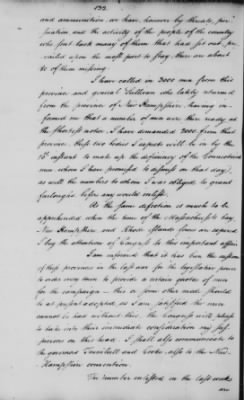 132
and ammunition we have, however by threats, per
suasion and the activity of the people of the country
who sent back many of them that had set out, pre
vailed upon the most part to stay, there are about
80 of them missing
I have called in 3000 men from this
province and general Sullivan who lately returned
from the province of New Hampshire, having in
formed me that a number of men are there ready at
the shortest notice, I have demanded 2000 from that
province. these two bodies I expect will be in by the
10th instant to make up the deficiency of the Connecticut
men whom I have promised to dismiss on that day,
as well the numbers to whom I was obliged to grant
furloughs before any would enlist.
As the same defection is much to be
apprehended when the time of the Massachusetts bay
New Hampshire and Rhode Islands forces are expired
I beg the attention of Congress to this important affair.
I am informed that it has been the custom
of these provinces in the last war for the legislative power
to order every town to provide a certain quota of men
for the campaign — this or some other mode should
be at present adopted, as I am satisfied the men
cannot be had without this. the Congress will please
to take into their immediate consideration my sus
picions on this head. I shall also communicate to
the governors Trumbull and Cooke also to the New
Hampshire convention.
The number enlisted in the last week
are